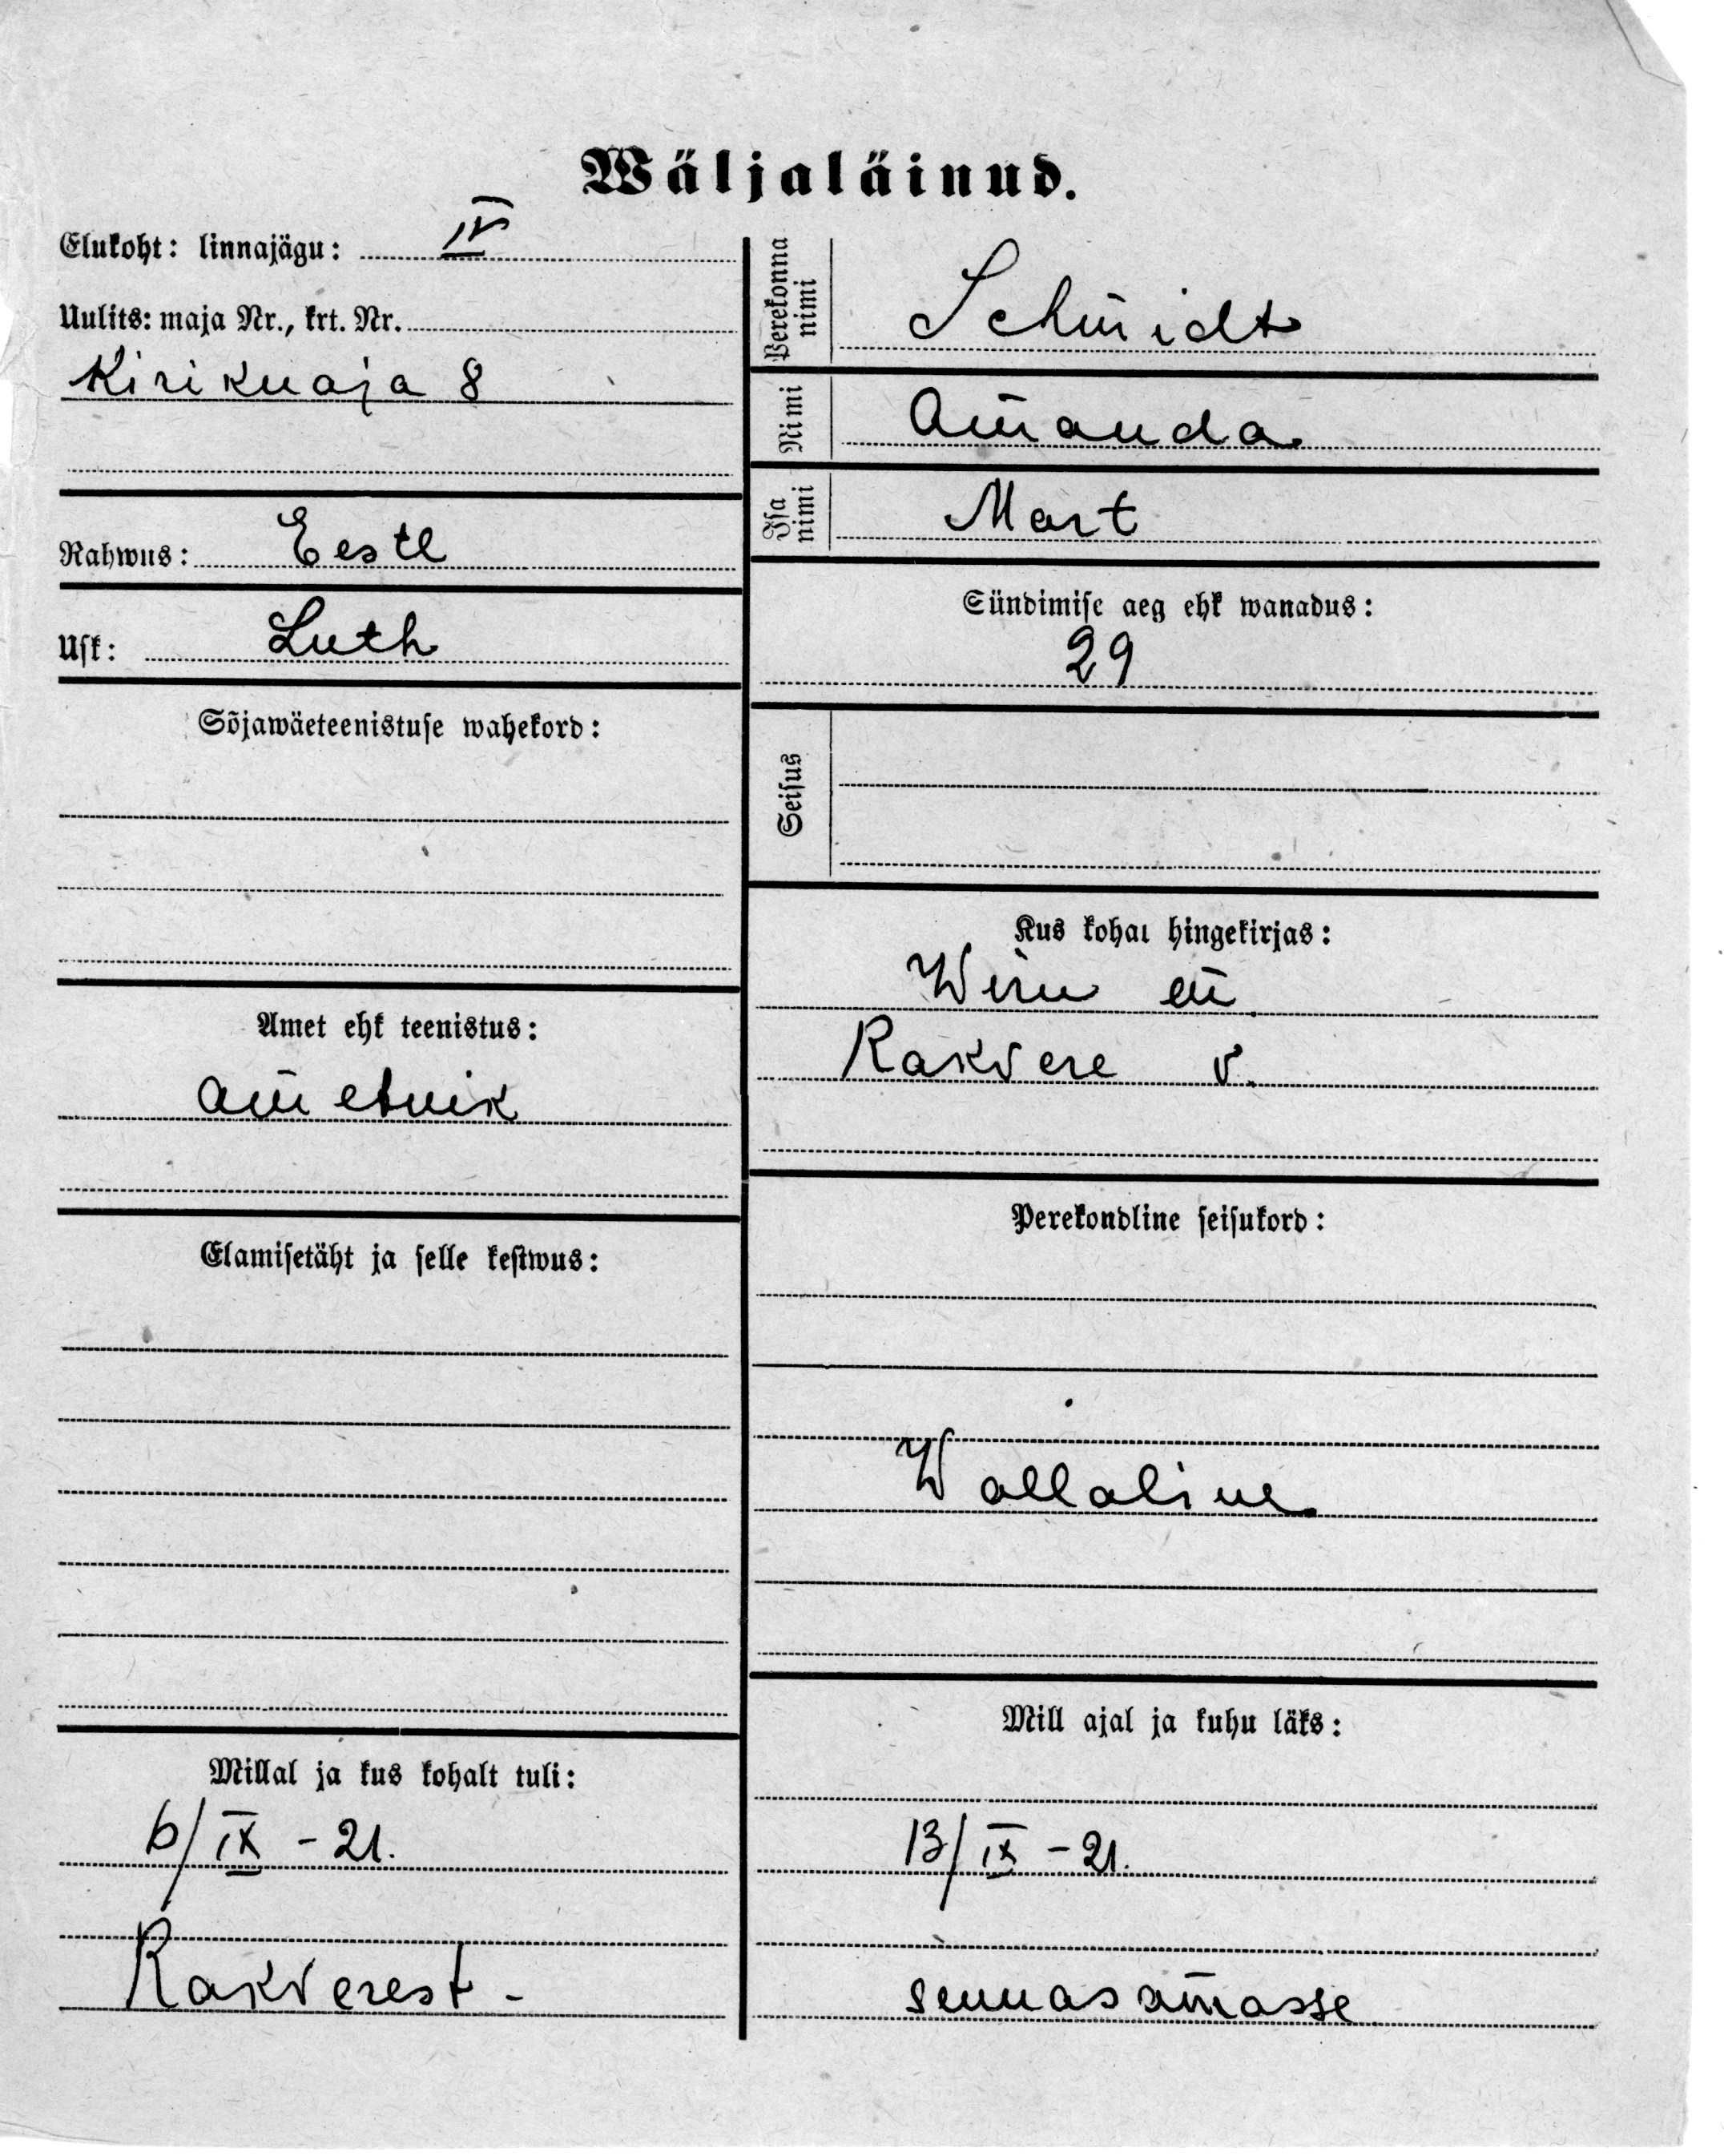 Wäljaläinud.
Elukoht: linnajägu: IV
Uulits: maja Nr., krt. Nr.
Kirikuaja 8
Rahwus: Eestl
Usk: Luth
Sõjawäeteenistuse wahekord:
Amet ehk teenistus:
ametnik
Elamisetäht ja selle kestwus:
Millal ja kus kohalt tuli:
6/IX - 21.
Rakverest -
Perekonna nimi
Schmidt
Nimi
Amanda
Isa nimi
Mart
Sündimise aeg ehk wanadus:
29
Seisus
Kus kohal hingekirjas:
Wiru m.
Rakvere v.
Perekondline seisukord:
Wallaline
Mill ajal ja kuhu läks:
13/IX - 21.
sennasamasse